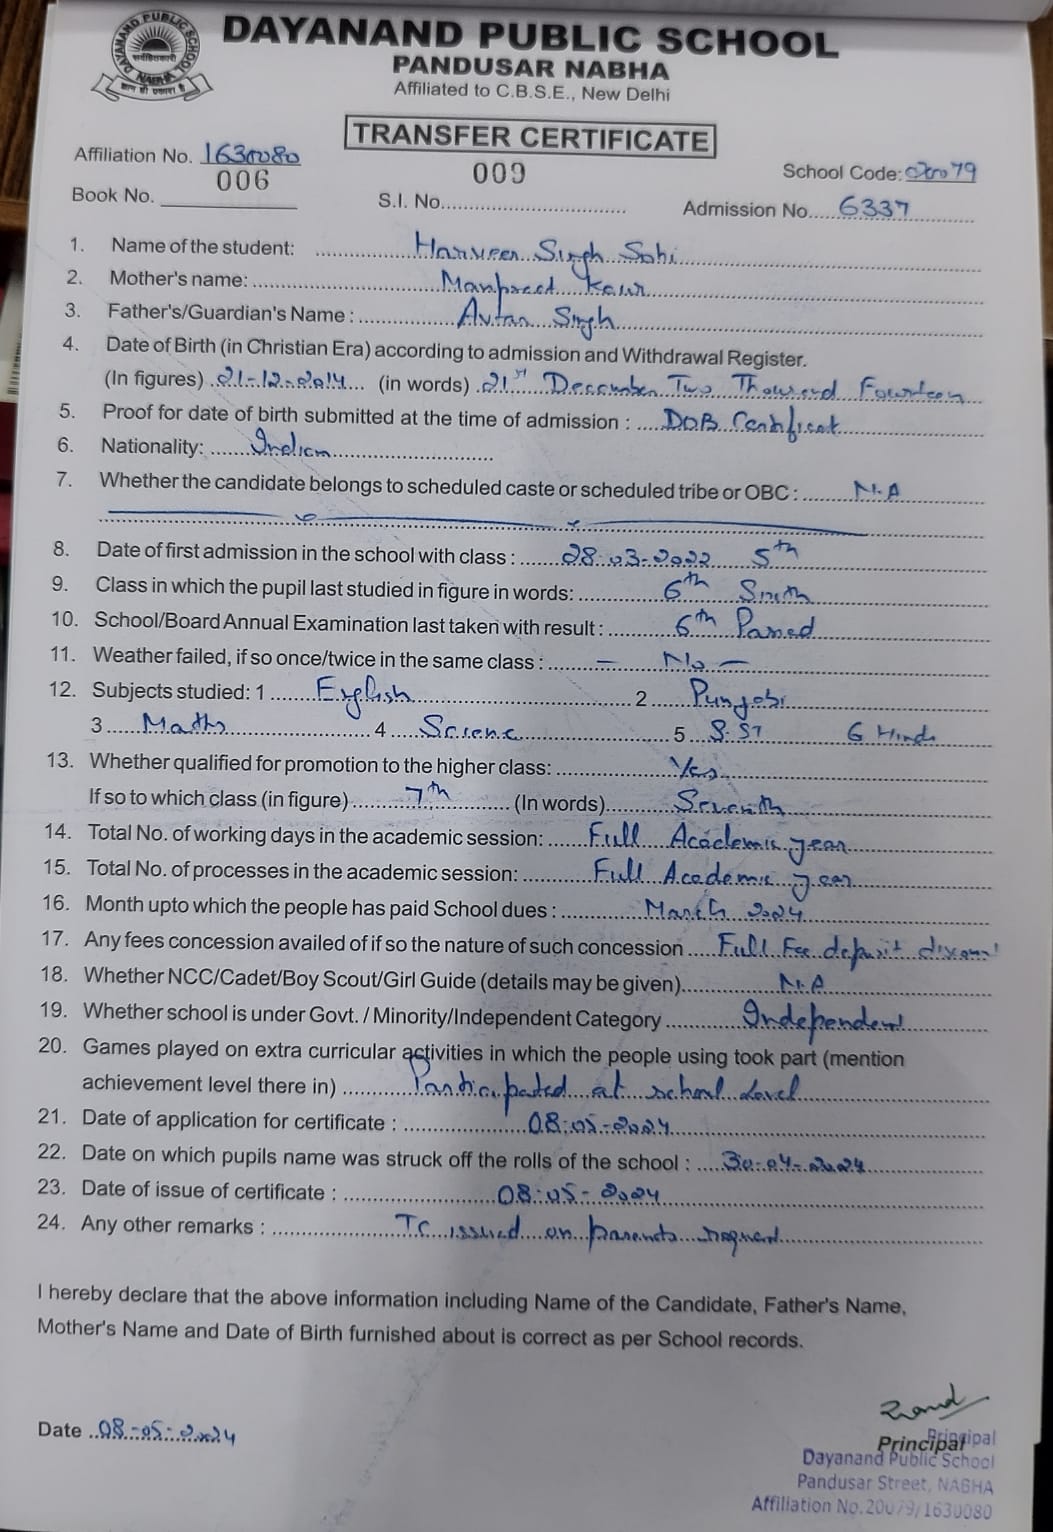 DAYANAND PUBLIC SCHOOL
PANDUSAR NABHA
Affiliated to C.B.S.E., New Delhi
TRANSFER CERTIFICATE
Affiliation No. 1630080
School Code: 20079
Book No. 006
S.I. No. 009
Admission No. 6337
1. Name of the student: Harveer Singh Sohi
2. Mother's name: Manpreet Kaur
3. Father's/Guardian's Name : Avtar Singh
4. Date of Birth (in Christian Era) according to admission and Withdrawal Register.
(In figures) 21-12-2014 (in words) 21st December Two Thousand Fourteen
5. Proof for date of birth submitted at the time of admission : DOB Certificat
6. Nationality: Indian
7. Whether the candidate belongs to scheduled caste or scheduled tribe or OBC : N.A
8. Date of first admission in the school with class : 28-03-2022 5th
9. Class in which the pupil last studied in figure in words: 6th Sixth
10. School/Board Annual Examination last taken with result : 6th Passed
11. Weather failed, if so once/twice in the same class : — No —
12. Subjects studied: 1 English 2 Punjabi
3 Maths 4 Science 5 S.ST 6 Hindi
13. Whether qualified for promotion to the higher class: Yes
If so to which class (in figure) 7th (In words) Seventh
14. Total No. of working days in the academic session: Full Academic year
15. Total No. of processes in the academic session: Full Academic year
16. Month upto which the people has paid School dues : March 2024
17. Any fees concession availed of if so the nature of such concession Full Fee deposit
18. Whether NCC/Cadet/Boy Scout/Girl Guide (details may be given) N.A
19. Whether school is under Govt. / Minority/Independent Category Independent
20. Games played on extra curricular activities in which the people using took part (mention
achievement level there in) Participated at school Level
21. Date of application for certificate : 08-05-2024
22. Date on which pupils name was struck off the rolls of the school : 30-04-2024
23. Date of issue of certificate : 08-05-2024
24. Any other remarks : TC issued on parents request
I hereby declare that the above information including Name of the Candidate, Father's Name,
Mother's Name and Date of Birth furnished about is correct as per School records.
Date 08-05-2024
Principal
Principal
Dayanand Public School
Pandusar Street, NABHA
Affiliation No.20079/1630080